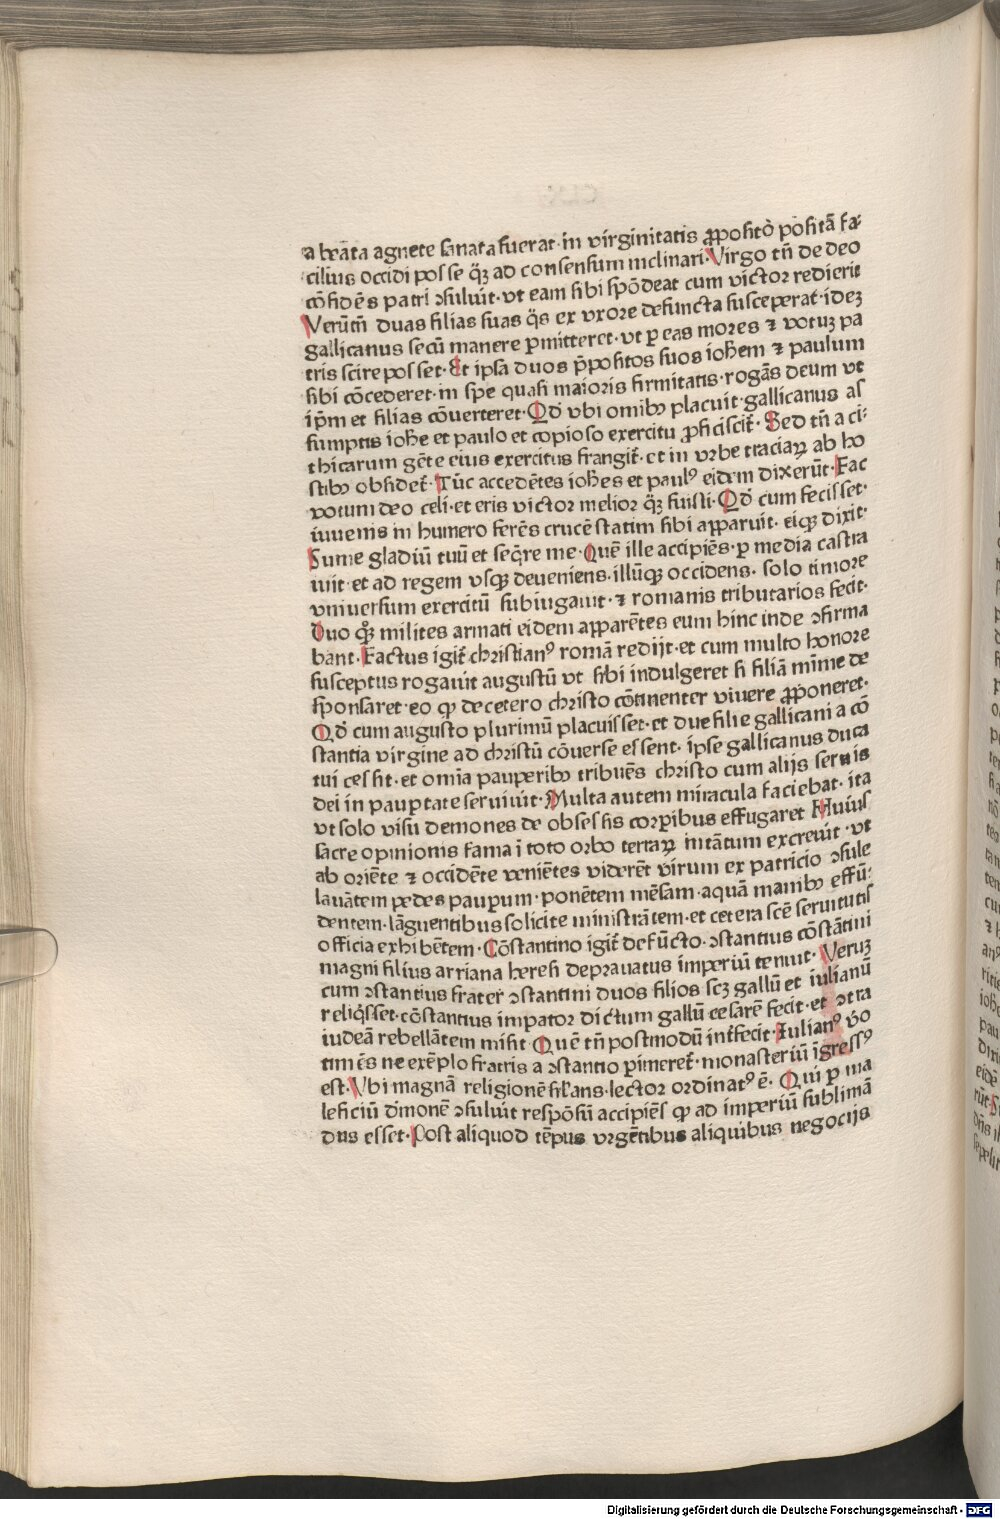 a beãta agnete sanata fuerat· in virginitatis ꝓposito᷒ positã fa⸗
cilius occidi posse q̃ꝫ ad consensum inclinari· Virgo tñ de deo
cõfidẽs patri ↄsuluit· vt eam sibi spõdeat cum victor redierit
Verũtñ duas filias suas q̃s ex vxore defuncta susceperat· idez
gallicanus secũ manere ꝑmitteret· vt ꝑ eas mores ⁊ votuꝫ pa
tris scire posset· Et ipsã duos p̄positos suos ioh̃em ⁊ paulum
sibi cõcederet· in spe quasi maioris firmitatis· rogãs deum vt
ip̃m et filias cõuerteret· Qđ vbi omibꝰ placuit· gallicanus as
sumptis ioh̃e et paulo et copioso exercitu ꝓficiscit̃· Sed tñ a ci⸗
thicarum gẽte eius exercitus frangit̃· et in vrbe traciaꝝ ab ho
stibꝰ obsidet̃· Tũc accedẽtes ioh̃es et paulꝰ eidem dixerũt· Fac
votum deo celi· et eris victor melior q̃ꝫ fuisti· Qđ cum fecisset·
iuuenis in humero ferẽs crucẽ statim sibi apparuit· eiqꝫ dixit·
Sume gladiũ tuũ et seq̃re me· Quẽ ille accipiẽs· ꝑ media castra
iuit· et ad regem vsqꝫ deueniens· illũqꝫ occidens· solo timore
vniuersum exercitũ subiugauit· ⁊ romanis tributarios fecit·
Duo qꝫ milites armati eidem apparẽtes eum hinc inde ↄfirma
bant· Factus igit̃ christianꝰ romã redijt· et cum multo honore
susceptus rogauit augustũ vt sibi indulgeret si filiã mĩme de
sponsaret· eo ꝙ decetero christo cõtinenter viuere ꝓponeret·
Qđ cum augusto plurimũ placuisset· et due filie gallicani a cõ
stantia virgine ad christũ cõuerse essent· ipse gallicanus duca
tui cessit· et omia pauperibꝰ tribuẽs christo cum alijs seruis
dei in pauꝑtate seruiuit· Multa autem miracula faciebat· ita
vt solo visu demones de obsessis corꝑibus effugaret Huius
sacre opinionis fama ĩ toto orbo terraꝝ intãtum excreuit· vt
ab oriẽte ⁊ occidẽte veniẽtes viderẽt virum ex patricio ↄsule
lauãtem pedes pauꝑum· ponẽtem mẽsam· aquã manibꝰ effũ⸗
dentem· lãguentibus solicite ministrãtem· et cetera scẽ seruitutis
officia exhibẽtem· Cõstantino igit̃ defũcto· ↄstantius cõstãtini
magni filius arriana heresi deprauatus imperiũ tenuit· Veruꝫ
cum ↄstantius frater ↄstantini duos filios scꝫ gallũ et iulianũ
reliq̃sset· cõstantius impator dictum gallũ cesarẽ fecit· et ↄtra
iudeã rebellãtem misit Quẽ tñ postmodũ int̃fecit· Iulianꝰ ṽo
timẽs ne exẽplo fratris a ↄstantio ꝑimeret̃· monasteriũ ĩgressꝰ
est· Vbi magnã religionẽ sil̃ans· lector ordinatꝰ ẽ· Qui ꝑ ma
leficiũ dẽmonẽ ↄsuluit respõsũ accipiẽs ꝙ ad imperiũ sublimã
dus esset· Post aliquod tẽpus vrgẽtibus aliquibus negocijs
Digitalisierung gefördert durch die Deutsche Forschungsgemeinschaft - DFG